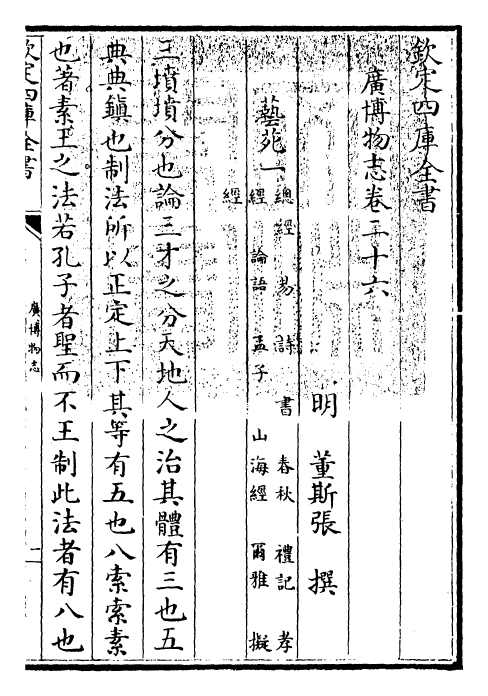 欽定四庫全書
廣博物志卷二十六
明 董斯張 撰
藝苑一
總經 易 詩 書 春秋 禮記 孝
經 論語 孟子 山海經 爾雅 擬
經
三墳墳分也論三才之分天地人之治其體有三也五
典典鎮也制法所以正定上下其等有五也八索索素
也著素王之法若孔子者聖而不王制此法者有八也
欽定四庫全書
廣博物志